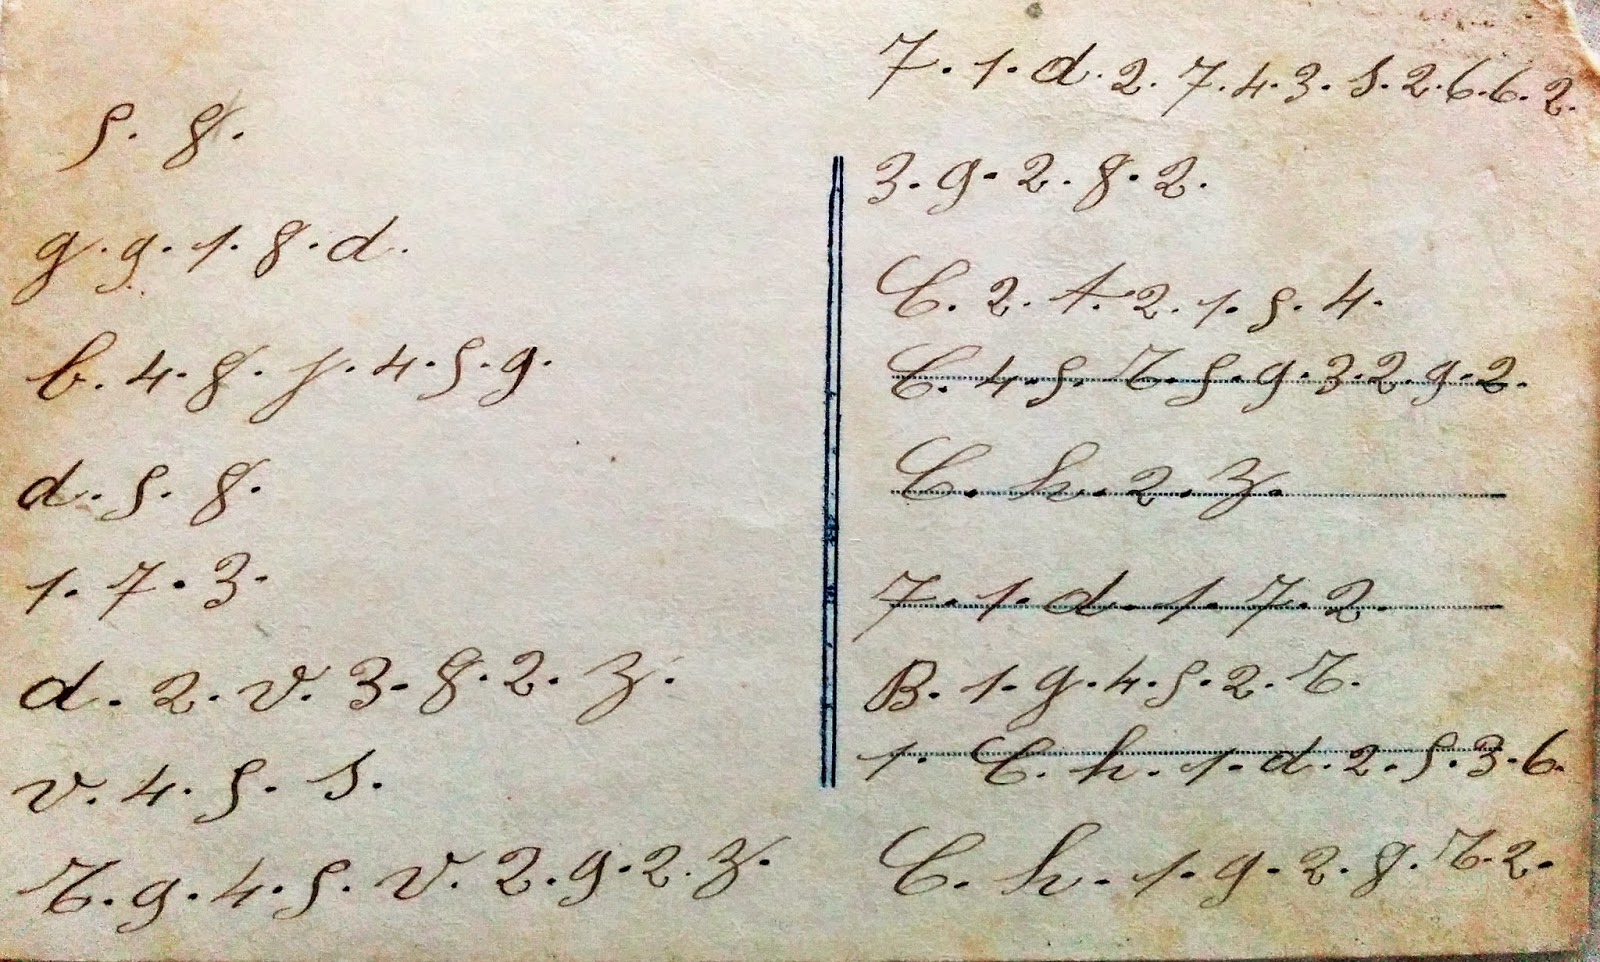 5. 8.
g. g. 1. 8. d.
b. 4. 8. j. 4. 5. g.
d. 5. 8.
1. 7. 3.
d. 2. v. 3. 8. 2. z.
v. 4. 5. s.
t. g. 4. 5. v. 2. g. 2. z.
7. 1. d. 2. 7. 4. 3. s. 2. 6. 6. 2.
3. g. 2. 8. 2.
C. 2. t. 2. 1. 5. 4.
C. 4. 5. t. 5. g. 3. 2. g. 2.
C. h. 2. z.
7. 1. d. 1. 7. 2.
B. 1. g. 4. 5. 2. t.
1. C. h. 1. d. 2. 5. 3. 6.
C. h. 1. g. 2. 8. t. 2.